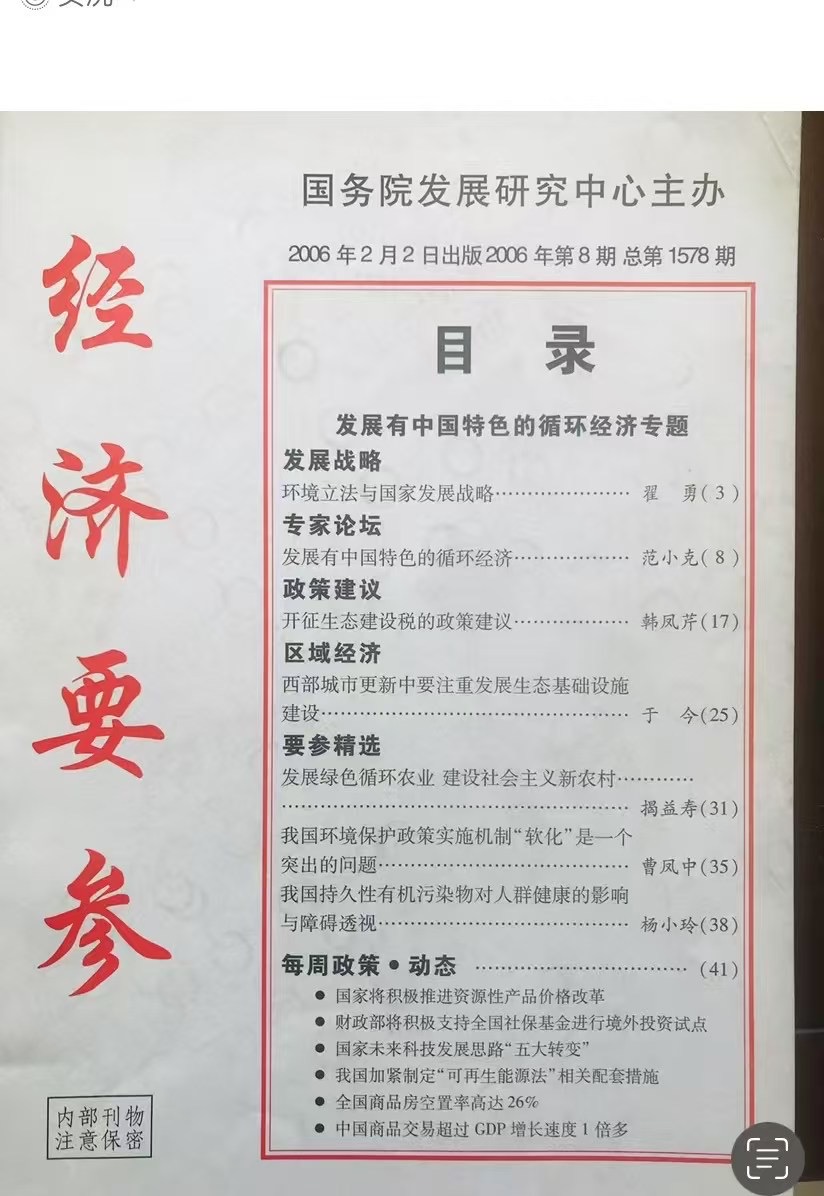 国务院发展研究中心主办
2006年2月2日出版2006年第8期 总第1578期
经济要参
目 录
发展有中国特色的循环经济专题
发展战略
环境立法与国家发展战略………………… 翟 勇(3)
专家论坛
发展有中国特色的循环经济……………… 范小克(8)
政策建议
开征生态建设税的政策建议……………… 韩凤芹(17)
区域经济
西部城市更新中要注重发展生态基础设施
建设………………………………………… 于 今(25)
要参精选
发展绿色循环农业 建设社会主义新农村…………
……………………………………………… 揭益寿(31)
我国环境保护政策实施机制“软化”是一个
突出的问题………………………………… 曹凤中(35)
我国持久性有机污染物对人群健康的影响
与障碍透视………………………………… 杨小玲(38)
每周政策•动态 …………………………… (41)
● 国家将积极推进资源性产品价格改革
● 财政部将积极支持全国社保基金进行境外投资试点
● 国家未来科技发展思路“五大转变”
● 我国加紧制定“可再生能源法”相关配套措施
● 全国商品房空置率高达26%
● 中国商品交易超过GDP增长速度1倍多
内部刊物
注意保密